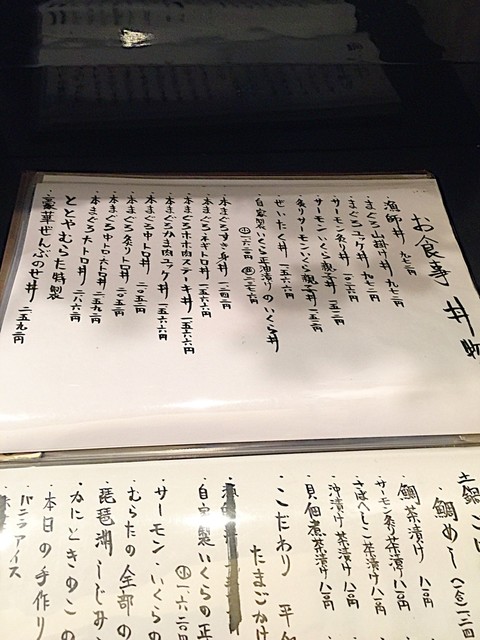 お食事 丼物
漁師丼 九七二円
・まぐろ山掛け丼 九七二円
・まぐろユッケ丼 九七二円
・サーモン炙り丼 一〇二六円
・サーモンいくら親子丼
・炙りサーモンいくら親子丼
・ぜいたく丼 一五六六円
・自家製いくら正油漬りのいくら丼
・本まぐろすき身丼
・本まぐろネギトロ丼 一五六六円
・本まぐろホホ肉ステーキ丼 一五六六円
・本まぐろかま肉ユッケ丼 一五六六円
・本まぐろ中トロ丼 二〇五二円
・本まぐろ炙りトロ丼 二〇五二円
・本まぐろ中トロ大トロ丼
・本まぐろ大トロ丼
ととやむらた特製
・豪華ぜんぶのせ丼 二五九二円
土鍋ごは
・鯛めし
・鯛茶漬け 八一〇円
・サーモン炙り茶漬け 八一〇円
・さばへしこ茶漬け 八一〇円
・沖漬け茶漬け 八一〇円
・貝佃煮茶漬け 八一〇円
・こだわり 平飼
たまごかけ
・自家製いくらの正
・サーモン・いくらの
㊥一六二〇円
・むらたの全部の
・琵琶湖しじみ
・かにときのこの
・本日の手作り
・バニラアイス